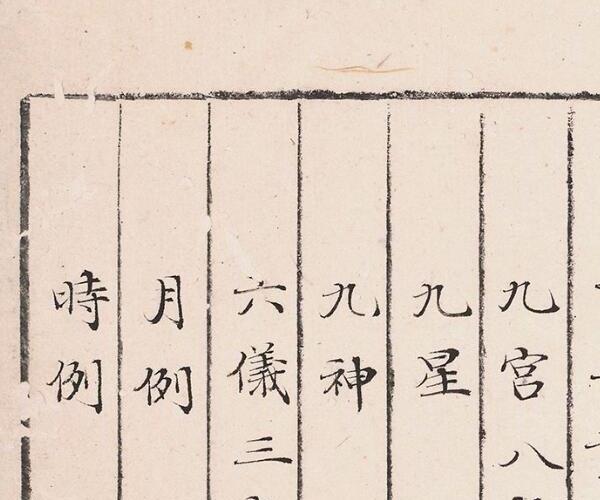 九宮八
九星
九神
六儀三
月例
時例